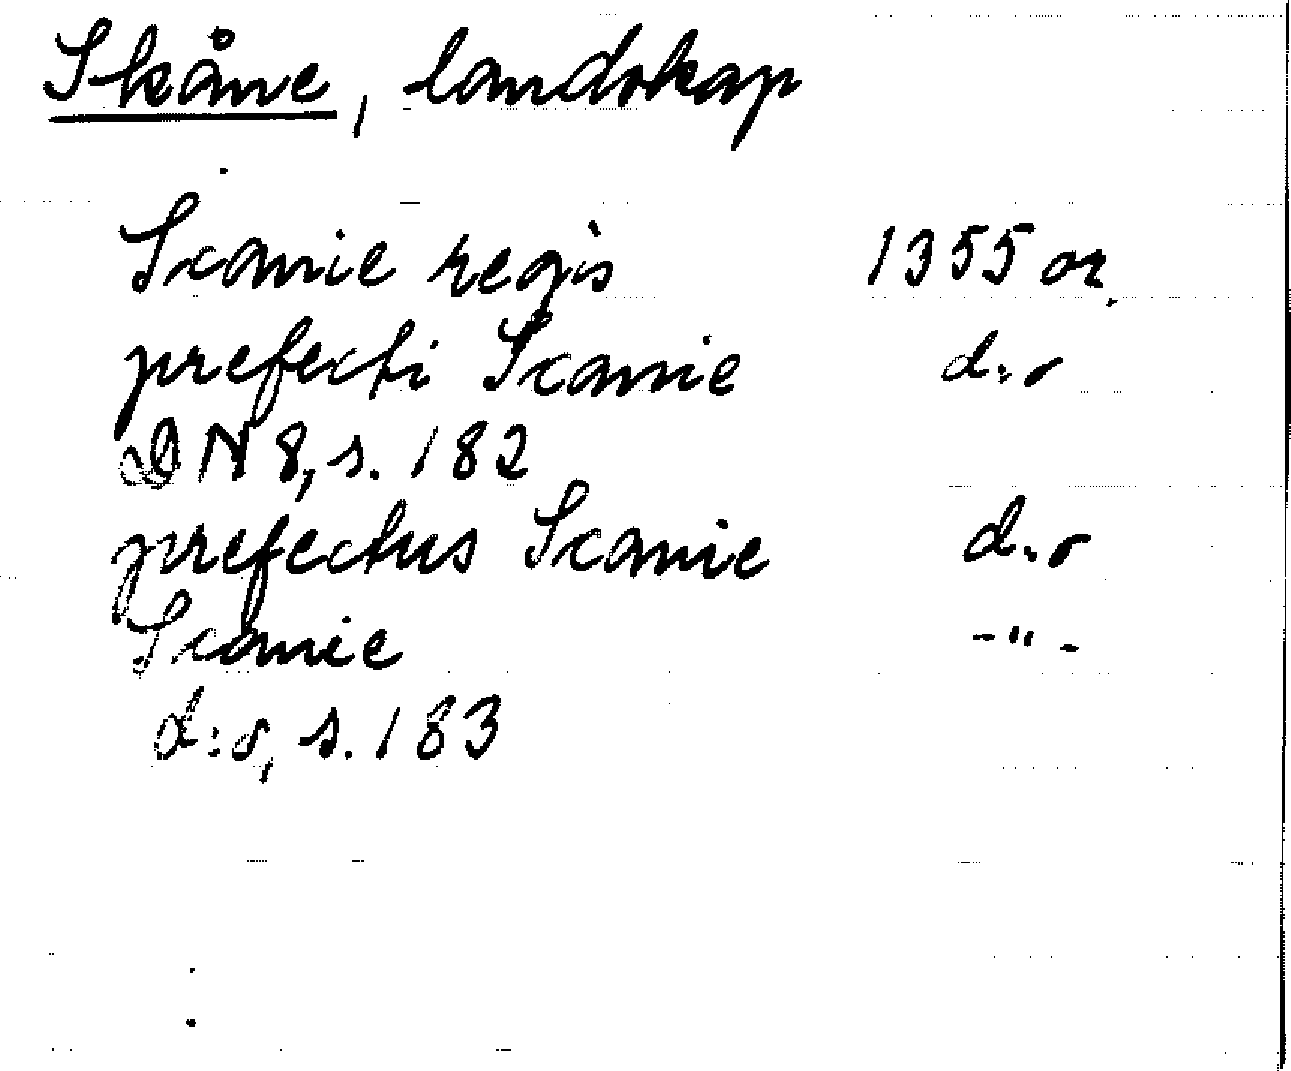 Skåne, landskap
Scanie regis 1355 or.
prefecti Scanie d:o
DN 8, s. 182
prefectus Scanie d:o
Scanie -"-
d:o, s. 183